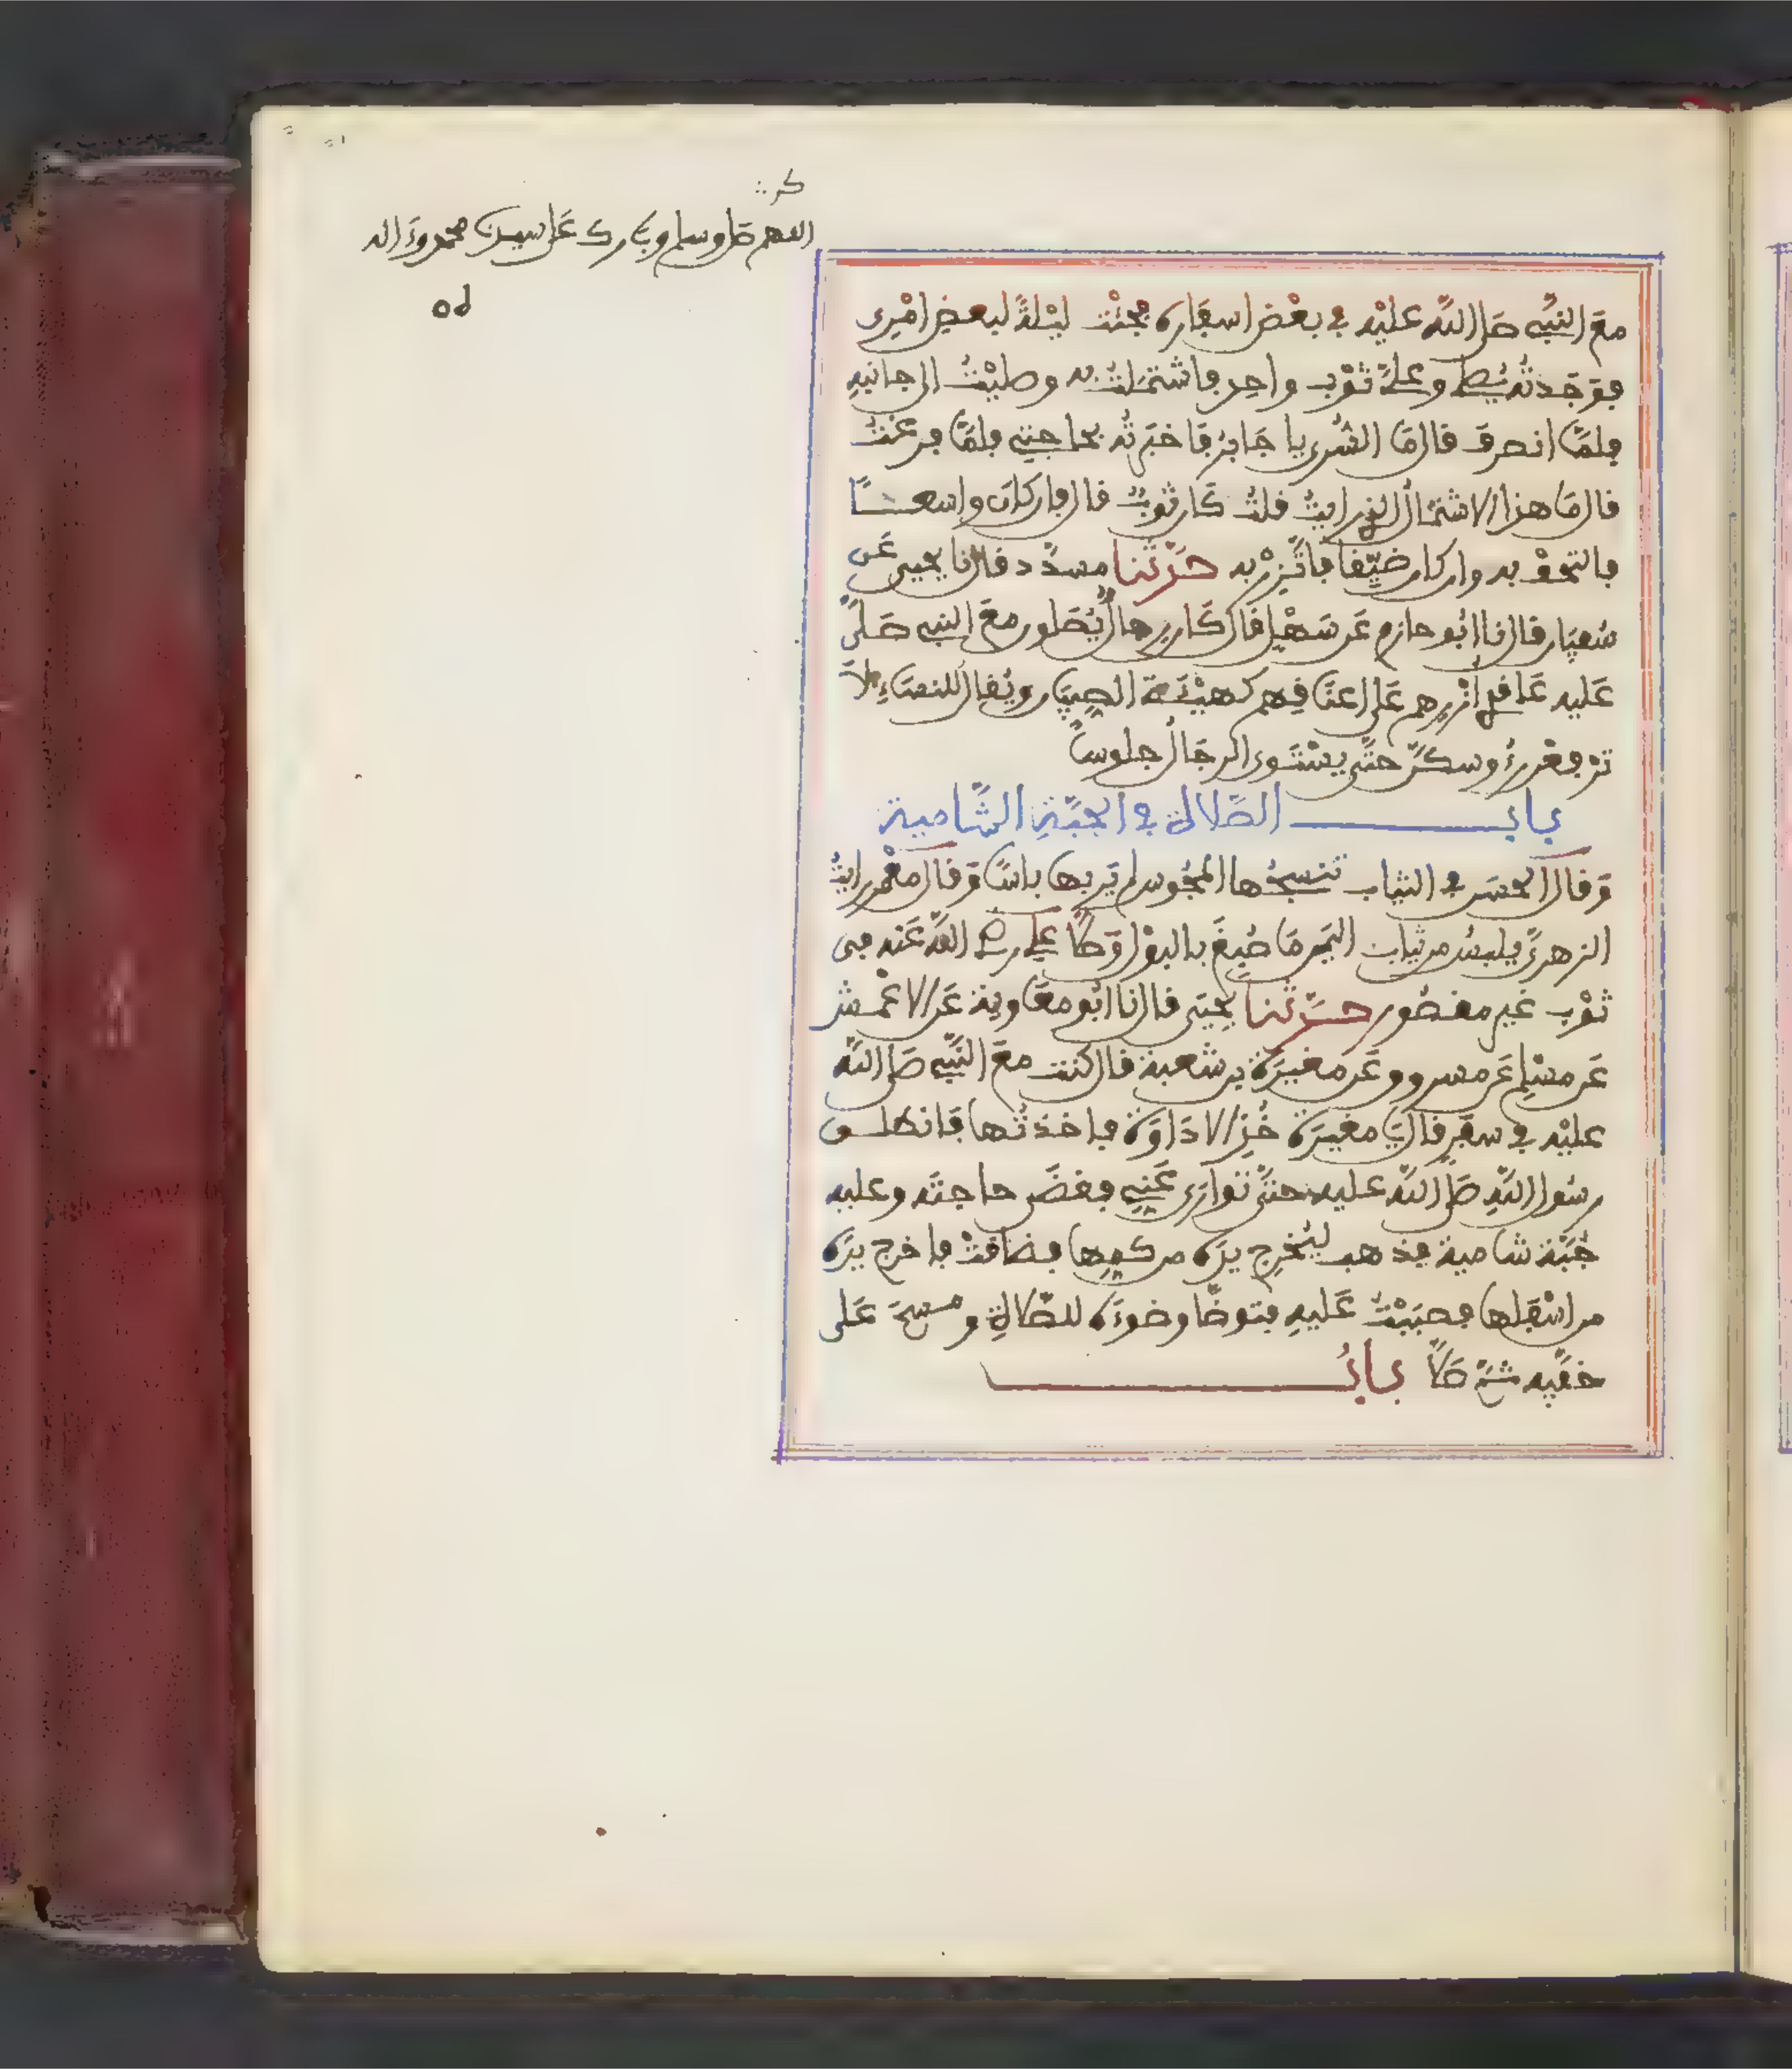 كر
اللهم صل وسلم وبارك على سيدنا محمد وءاله
مع النبي صلى الله عليه في بعض اسفاره فجئت ليلة لبعض امري
فوجدته يصلي وعلي ثوب واحد فاشتملت به وصليت الى جانبه
فلما انصرف قال ما السرى يا جابر فاخبرته بحاجتي فلما فرغت
قال ما هذا الاشتمال الذي رايت قلت كان ثوب قال فان كان واسعا
فالتحف به وان كان ضيقا فاتزر به حدثنا مسدد قال نا يحيى عن
سفيان قال نا ابو حازم عن سهل قال كان رجال يصلون مع النبي صلى
عليه عاقدي ازرهم على اعناقهم كهيئة الصبيان ويقال للنساء لا
ترفعن رءوسكن حتى يستوي الرجال جلوسا
باب الصلاة في الجبة الشامية
وقال الحسن في الثياب تنسجها المجوس لم ير بها باسا وقال معمر رايت
الزهري يلبس من ثياب اليمن ما صبغ بالبول وصلى علي رضي الله عنه في
ثوب غير مقصور حدثنا يحيى قال نا ابو معاوية عن الاعمش
عن مسلم عن مسروق عن مغيرة بن شعبة قال كنت مع النبي صلى الله
عليه في سفر قال يا مغيرة خذ الاداوة فاخذتها فانطلق
رسول الله صلى الله عليه حتى توارى عني فقضى حاجته وعليه
جبة شامية فذهب ليخرج يده من كمها فضاقت فاخرج يده
من اسفلها فصببت عليه فتوضا وضوءه للصلاة ومسح على
خفيه ثم صلى باب